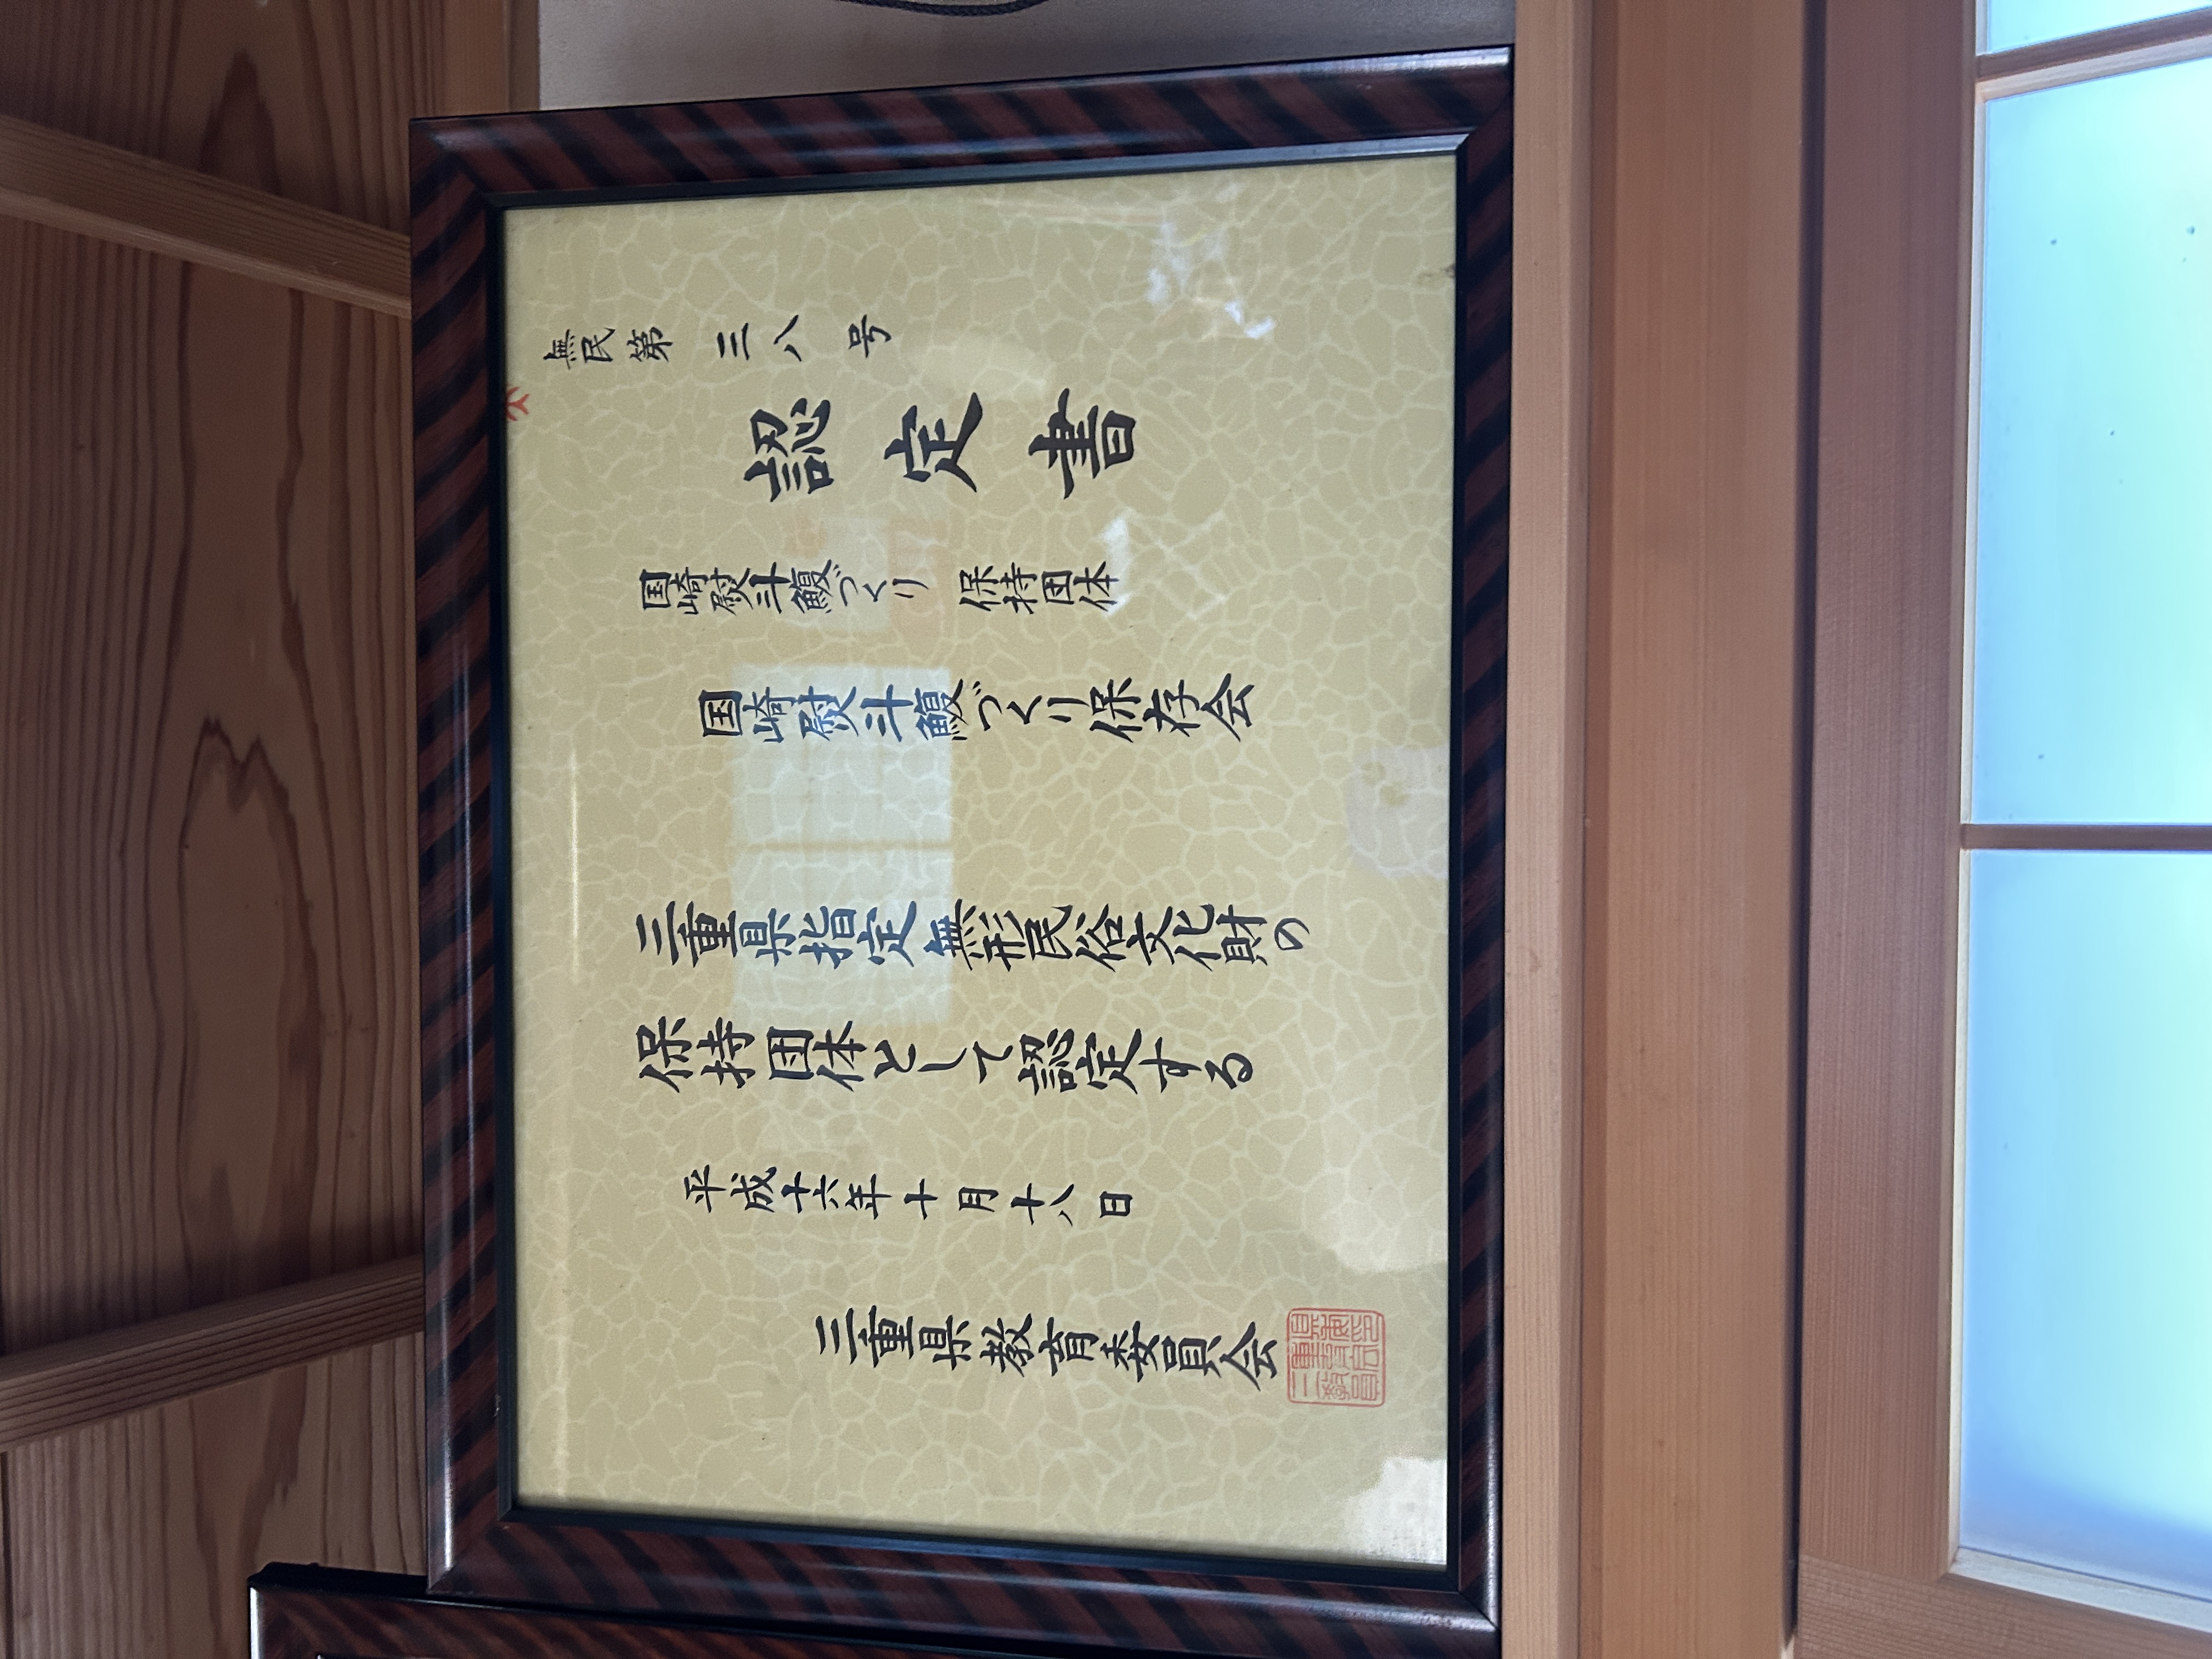 無民第三八号
認定書
国崎熨斗鰒づくり 保持団体
国崎熨斗鰒づくり保存会
三重県指定無形民俗文化財の
保持団体として認定する
平成十六年十月十八日
三重県教育委員会